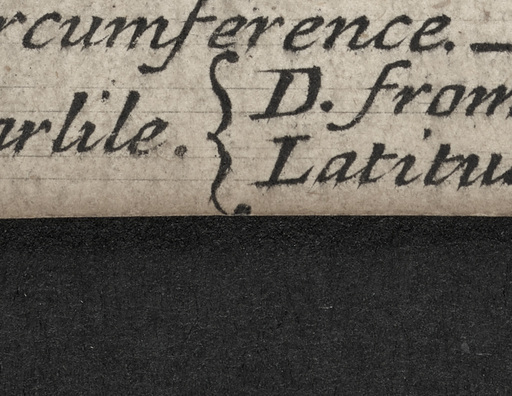 rcumference. —
arlile. { D. from
Latitu